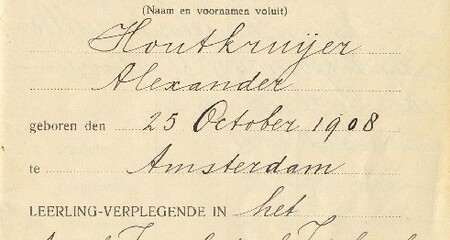 (Naam en voornamen voluit)
Houtkruijer
Alexander
geboren den 25 October 1908
te Amsterdam
LEERLING-VERPLEGENDE IN het